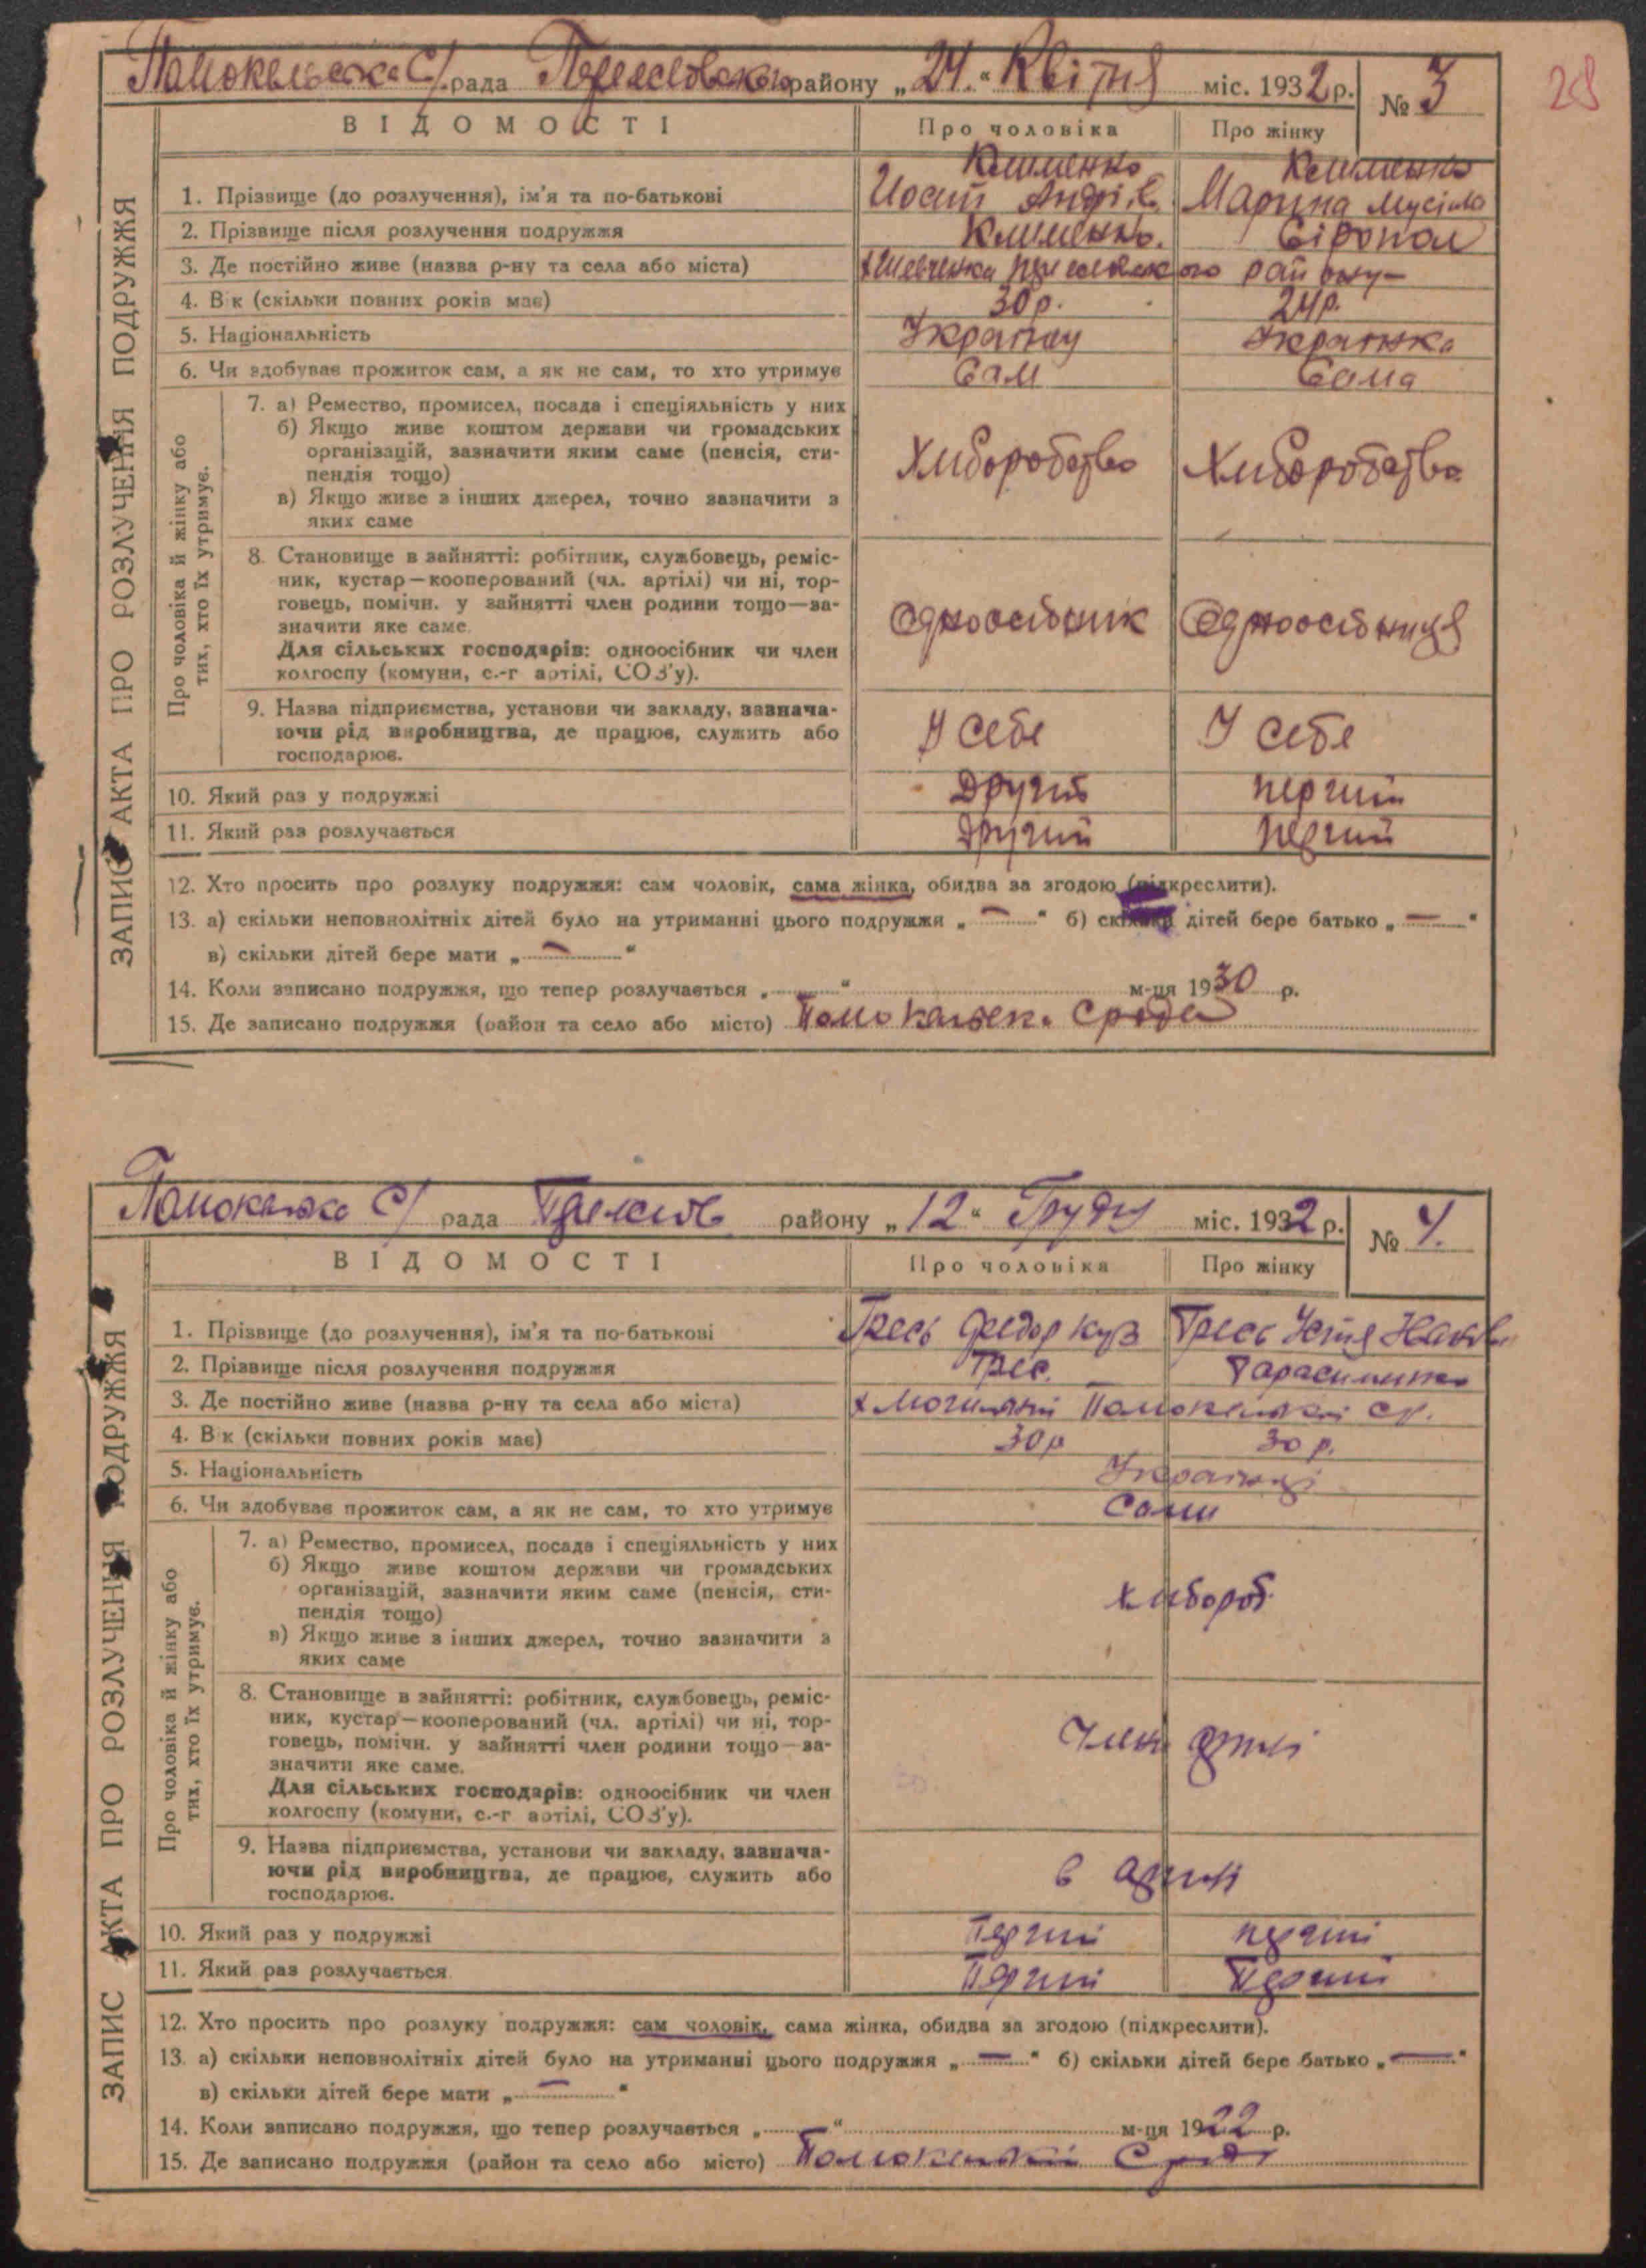 С/рада району „24.“ Квітня міс. 1932 р. № 3
28
ВІДОМОСТІ Про чоловіка Про жінку
Клименко Клименко
1. Прізвище (до розлучення), ім'я та по-батькові Йосип Андрів. Марина Мусіїв
2. Прізвище після розлучення подружжя Клименко.
3. Де постійно живе (назва р-ну та села або міста) х Шевченка району
4. Вік (скільки повних років має) 30 р. 24 р.
5. Національність Українец Українка
6. Чи здобуває прожиток сам, а як не сам, то хто утримує Сам Сама
Про чоловіка й жінку або
тих, хто їх утримує.
7. а) Ремество, промисел, посада і спеціяльність у них
б) Якщо живе коштом держави чи громадських
організацій, зазначити яким саме (пенсія, сти-
пендія тощо) Хліборобство Хліборобство
в) Якщо живе з інших джерел, точно зазначити з
яких саме
8. Становище в зайнятті: робітник, службовець, реміс-
ник, кустар—кооперований (чл. артілі) чи ні, тор-
говець, помічн. у зайнятті член родини тощо—за-
значити яке саме. Одноосібник Одноосібниця
Для сільських господарів: одноосібник чи член
колгоспу (комуни, с.-г артілі, СОЗ'у).
9. Назва підприємства, установи чи закладу, зазнача-
ючи рід виробництва, де працює, служить або У себе У себе
господарює.
10. Який раз у подружжі Другий перший
11. Який раз розлучається Другий перший
12. Хто просить про розлуку подружжя: сам чоловік, сама жінка, обидва за згодою (підкреслити).
13. а) скільки неповнолітніх дітей було на утриманні цього подружжя „ — “ б) скільки дітей бере батько „ — “
в) скільки дітей бере мати „ — “
14. Коли записано подружжя, що тепер розлучається „ “ м-ця 1930 р.
15. Де записано подружжя (район та село або місто) Срада
ЗАПИС АКТА ПРО РОЗЛУЧЕННЯ ПОДРУЖЖЯ
С/ рада району „12“ Грудня міс. 1932 р. № 4.
ВІДОМОСТІ Про чоловіка Про жінку
1. Прізвище (до розлучення), ім'я та по-батькові Тресь Федор Куз Тресь Устя
2. Прізвище після розлучення подружжя Трес.
3. Де постійно живе (назва р-ну та села або міста) ср.
4. Вік (скільки повних років має) 30 р 30 р.
5. Національність Українці
6. Чи здобуває прожиток сам, а як не сам, то хто утримує Сами
Про чоловіка й жінку або
тих, хто їх утримує.
7. а) Ремество, промисел, посада і спеціяльність у них
б) Якщо живе коштом держави чи громадських
організацій, зазначити яким саме (пенсія, сти-
пендія тощо) хлібороб.
в) Якщо живе з інших джерел, точно зазначити з
яких саме
8. Становище в зайнятті: робітник, службовець, реміс-
ник, кустар—кооперований (чл. артілі) чи ні, тор-
говець, помічн. у зайнятті член родини тощо—за-
значити яке саме. Член артілі
Для сільських господарів: одноосібник чи член
колгоспу (комуни, с.-г артілі, СОЗ'у).
9. Назва підприємства, установи чи закладу, зазнача-
ючи рід виробництва, де працює, служить або в артілі
господарює.
10. Який раз у подружжі Перший перший
11. Який раз розлучається Перший Перший
12. Хто просить про розлуку подружжя: сам чоловік, сама жінка, обидва за згодою (підкреслити).
13. а) скільки неповнолітніх дітей було на утриманні цього подружжя „ — “ б) скільки дітей бере батько „ — “
в) скільки дітей бере мати „ — “
14. Коли записано подружжя, що тепер розлучається „ — “ м-ця 1922 р.
15. Де записано подружжя (район та село або місто)
ЗАПИС АКТА ПРО РОЗЛУЧЕННЯ ПОДРУЖЖЯ